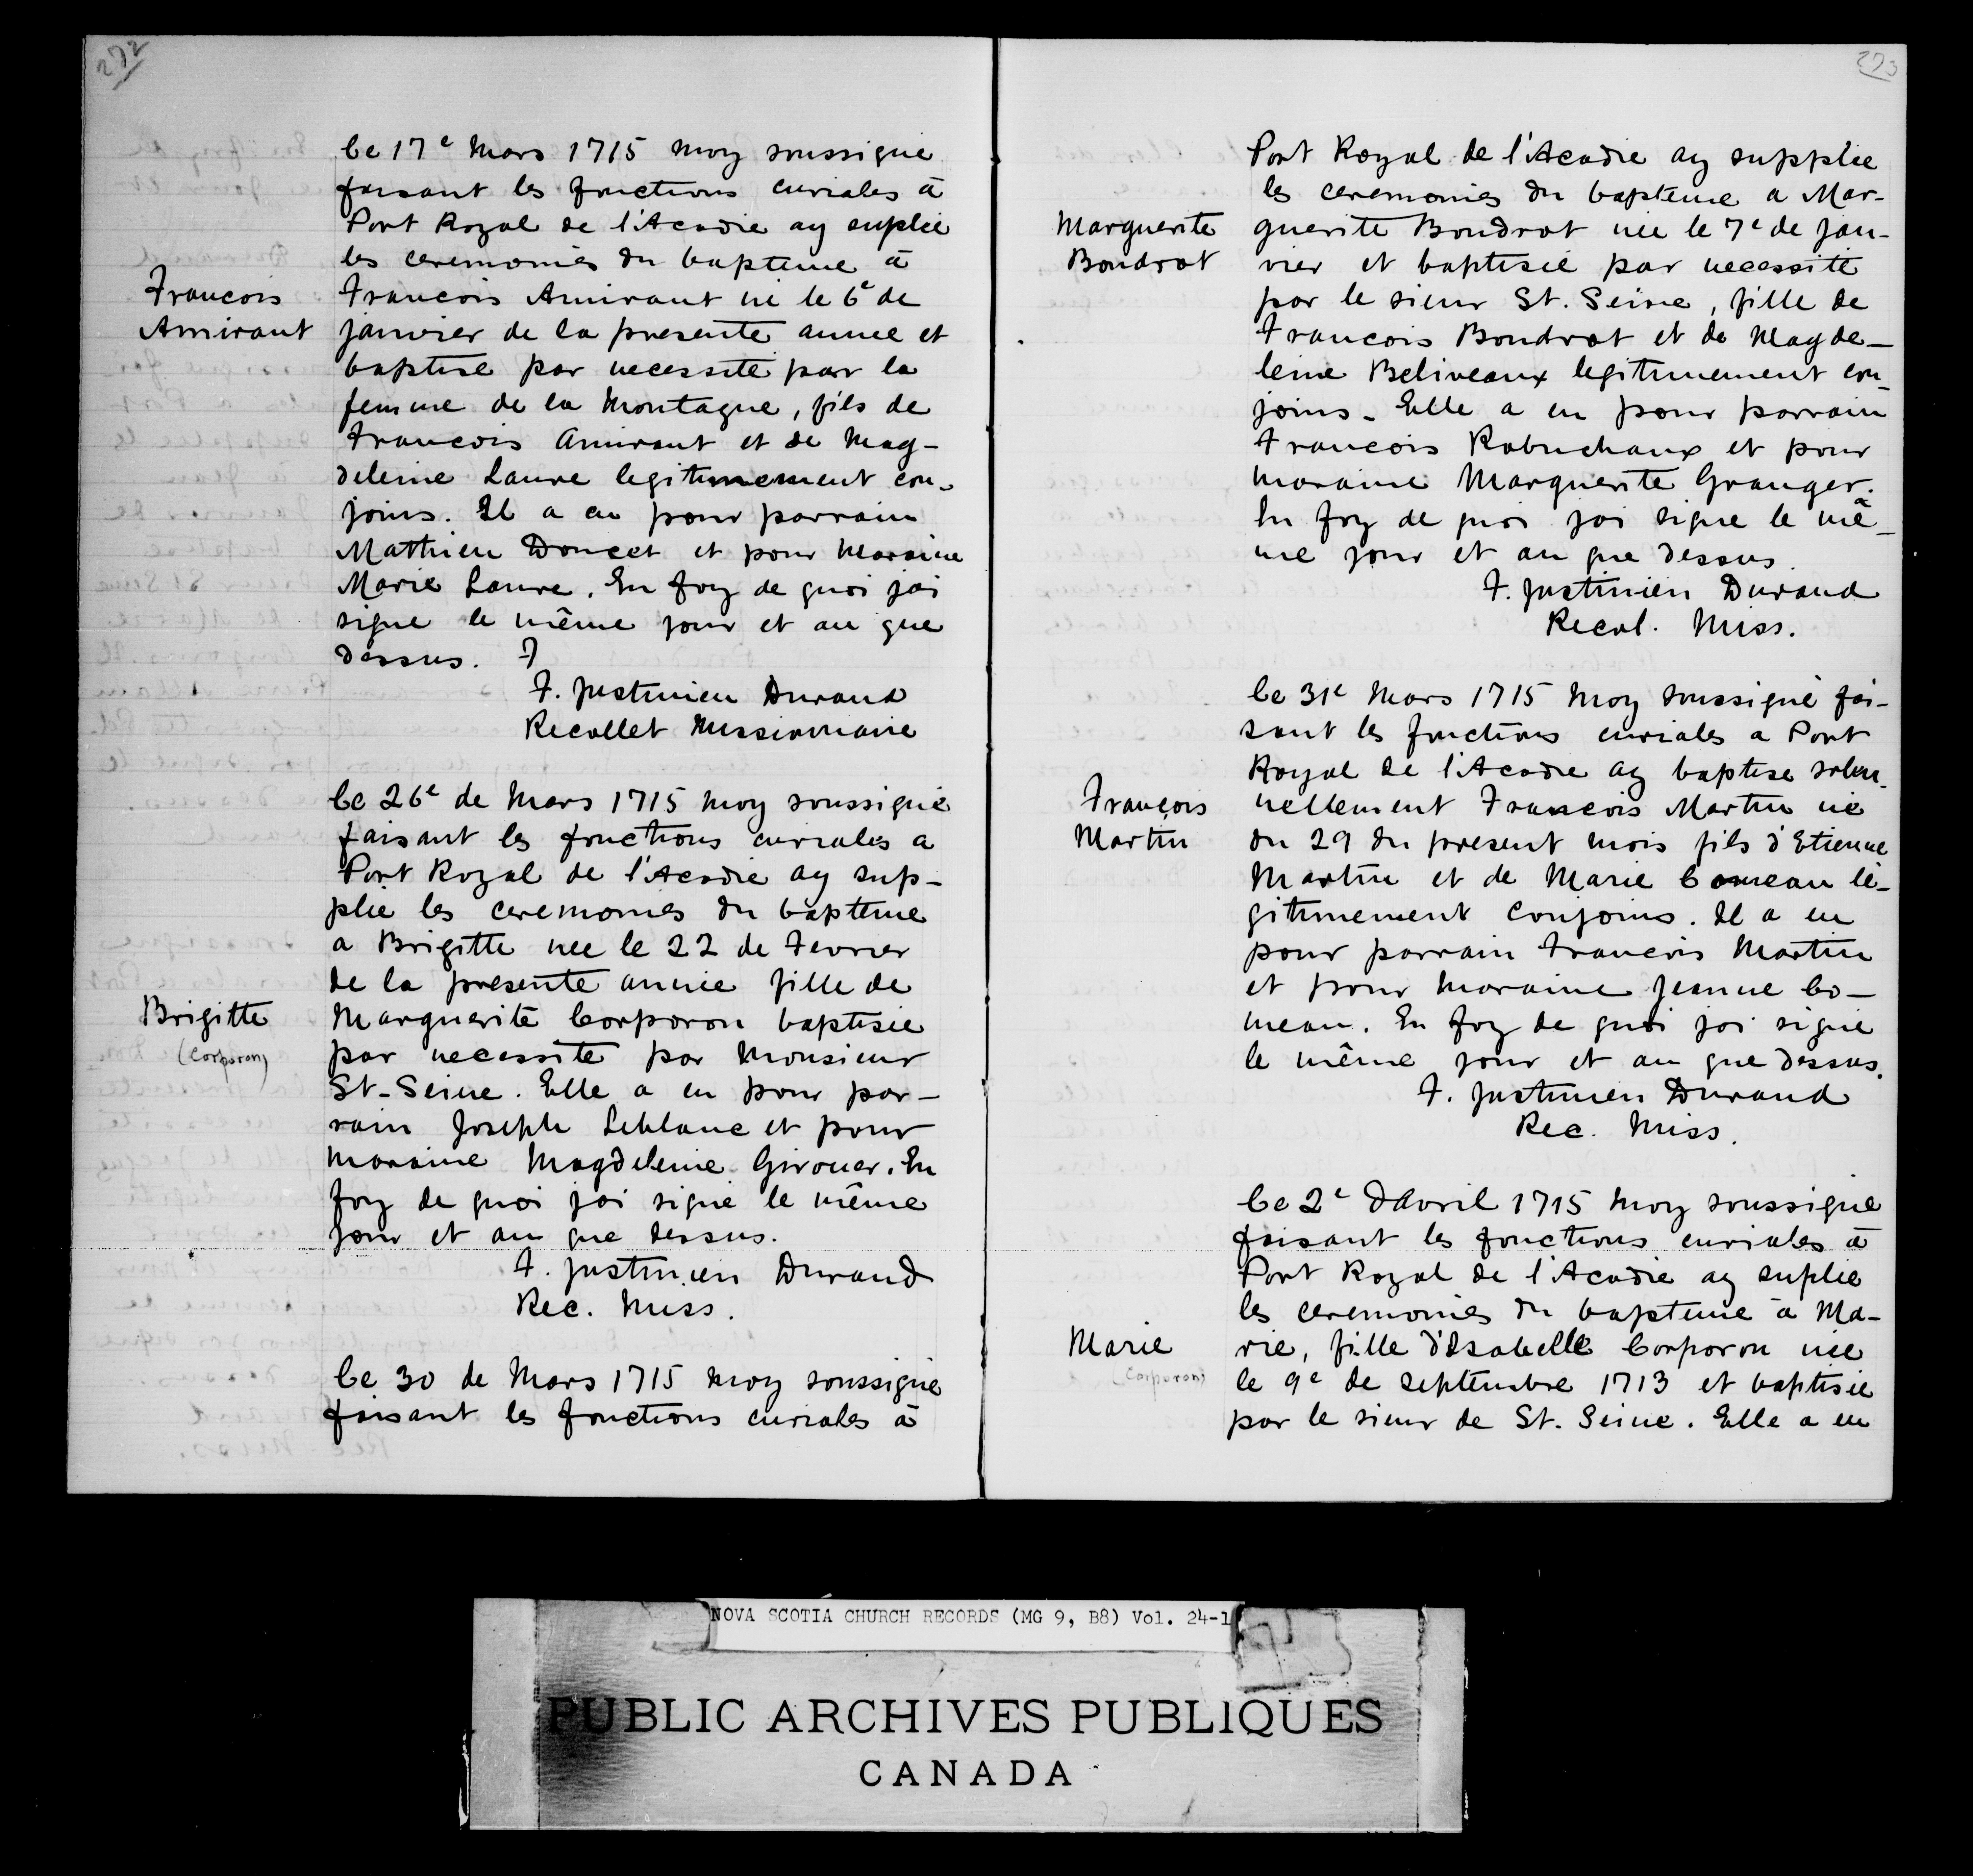 272
Le 17e Mars 1715 moy soussigné
faisant les fonctions curiales à
Port Royal de l'Acadie ay suplée
les ceremonies du bapteme à
Francois
Amirant
Francois Amirant né le 6e de
janvier de la presente année et
baptise par necessité par la
femme de la Montagne, fils de
Francois Amirant et de Mag-
deleine Laure legitimement con-
joins. Il a eu pour parrain
Mathieu Doucet et pour maraine
Marie Laure. En foy de quoi jai
signe le même jour et an que
dessus. F
F. Justinien Durand
Recollet Missionnaire
Le 26e de Mars 1715 moy soussigné
faisant les fonctions curiales a
Port Royal de l'Acadie ay sup-
plée les ceremonies du bapteme
a Brigitte née le 22 de Fevrier
de la presente année fille de
Brigitte
(Corporon)
Marguerite Corporon baptisée
par necessité par Monsieur
St-Seine. Elle a eu pour par-
rain Joseph Leblanc et pour
maraine Magdeleine Girouer. En
foy de quoi jai signé le même
jour et an que dessus.
F. Justinien Durand
Rec. Miss.
Le 30 de Mars 1715 moy soussigné
faisant les fonctions curiales à
273
Port Royal de l'Acadie ay supplée
les ceremonies du bapteme a Mar-
Marguerite
Boudrot
guerite Boudrot née le 7e de jan-
vier et baptisée par necessité
par le sieur St. Seine, fille de
Francois Boudrot et de Magde-
leine Beliveaux legitimement con-
joins. Elle a eu pour parrain
Francois Rabuchaux et pour
maraine Marguerite Granger.
En foy de quoi jai signe le mê-
me jour et an que dessus.
F. Justinien Durand
Recol. Miss.
Le 31e Mars 1715 moy soussigné fai-
sant les fonctions curiales a Port
Royal de l'Acadie ay baptise solen-
François
Martin
nellement Francois Martin né
du 29 du present mois fils d'Etienne
Martin et de Marie Comeau lé-
gitimement conjoins. Il a eu
pour parrain Francois Martin
et pour maraine Jeanne Co-
meau. En foy de quoi jai signé
le même jour et an que dessus.
F. Justinien Durand
Rec. Miss.
Le 2e d'avril 1715 moy soussigné
faisant les fonctions curiales à
Port Royal de l'Acadie ay suplée
les ceremonies du bapteme à Ma-
Marie
(Corporon)
rie, fille d'Isabelle Corporon née
le 9e de septembre 1713 et baptisée
par le sieur de St. Seine. Elle a eu
NOVA SCOTIA CHURCH RECORDS (MG 9, B8) Vol. 24-1
PUBLIC ARCHIVES PUBLIQUES
CANADA